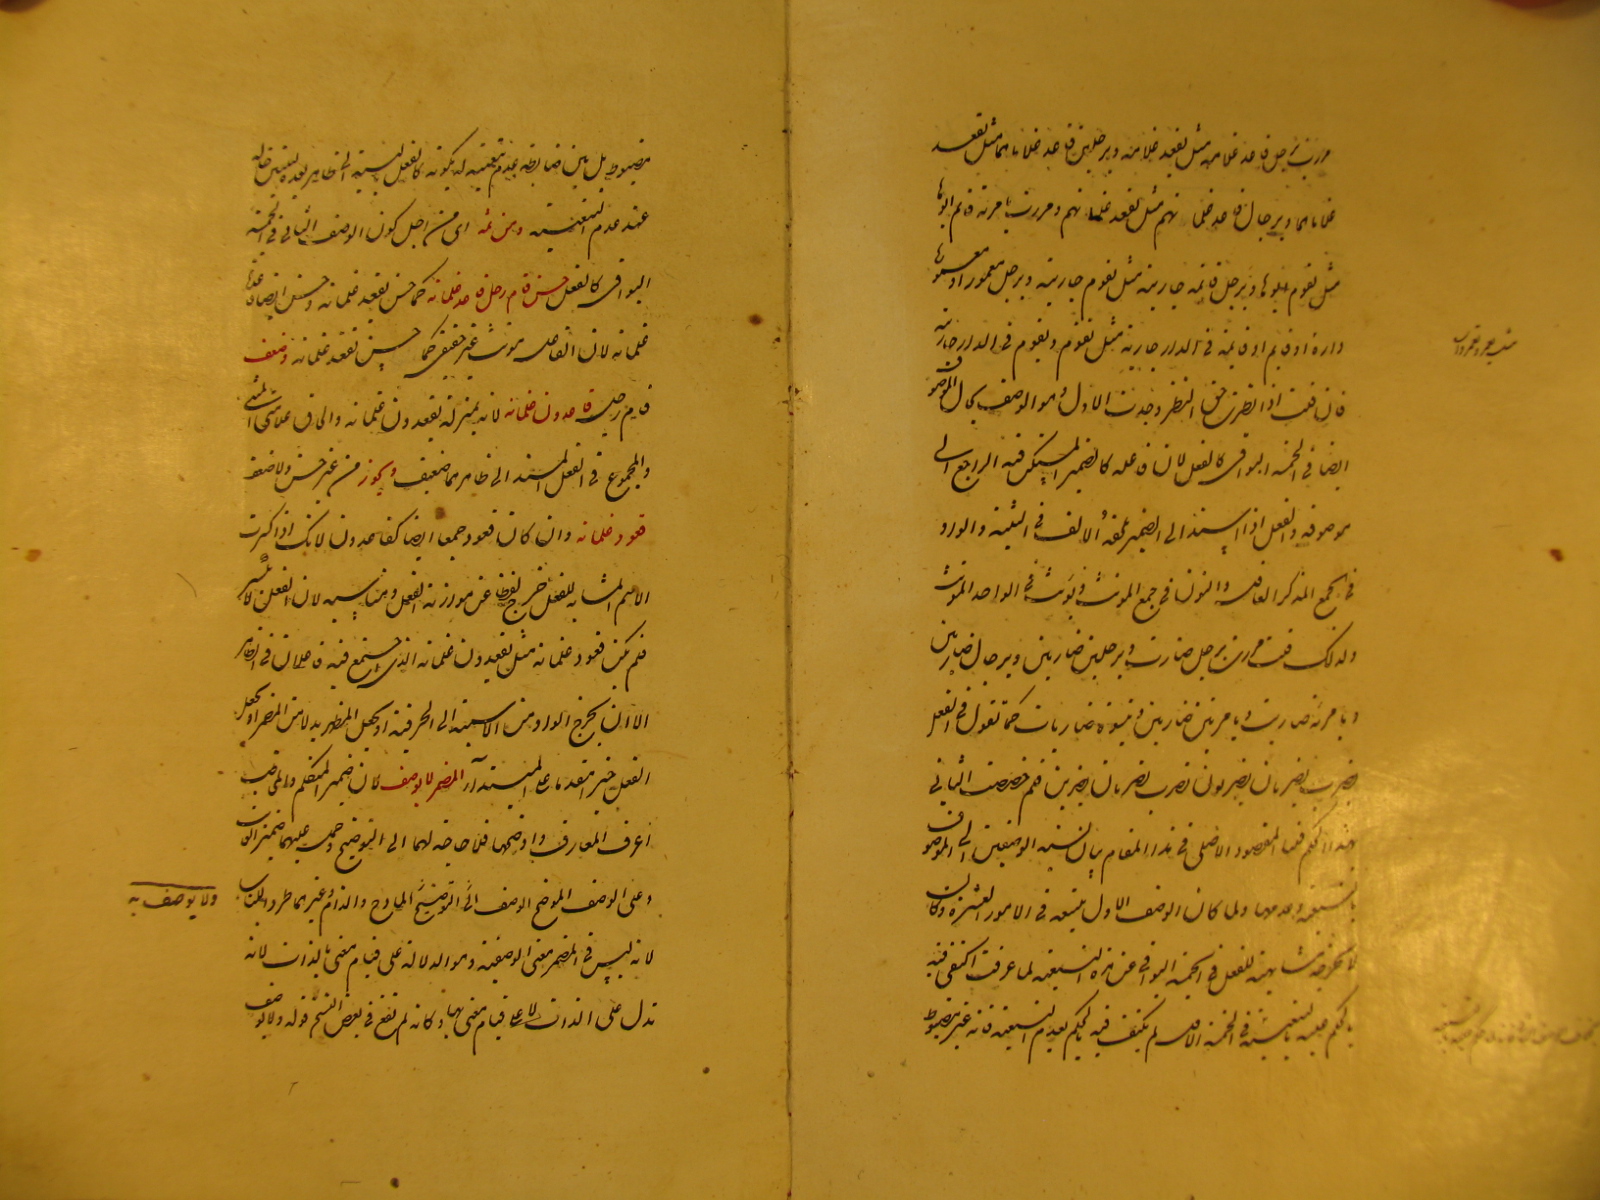 مررت برجل قاعد غلامه مثل يقعد غلامه وبرجلين قاعد غلاماهما مثل يقعد
غلاماهما وبرجال قاعد غلمانهم مثل يقعد غلمانهم ومررت بامرءة قائم ابوها
مثل يقوم ابوها وبرجل قائمة جاريته مثل تقوم جاريته وبرجل معمور او معمورة
داره او قائم او قائمة في الدار جاريته مثل تقوم ويقوم في الدار جاريته
فان قلت اذا نظرت حق النظر وجدت الاول وهو الوصف بحال الموصوف
ايضا في الخمسة البواقي كالفعل لان فاعله كالضمير المستكن فيه الراجع الى
موصوفه والفعل اذا اسند الى الضمير يلحقه الالف في التثنية والواو
في جمع المذكر العاقل والنون في جمع المؤنث ويؤنث في الواحد المؤنث
ولذلك قلت مررت برجل ضارب وبرجلين ضاربين وبرجال ضاربين
وبامرءة ضاربة وبامرءتين ضاربتين وبنسوة ضاربات كما تقول في الفعل
يضرب يضربان يضربون تضرب تضربان يضربن فلم خصصت الثاني
بهذا الحكم قلنا المقصود الاصلي في هذا المقام بيان نسبة الوصفين الى الموصوف
بالتبعية وعدمها ولما كان الوصف الاول يتبعه في الامور العشرة وكان
لا يخرجه مشابهته للفعل في الخمسة البواقي عن هذه التبعية لما عرفت اكتفى فيه
بالحكم عليه بالتبعية في الخمسة الاول لم يكتف فيه بالحكم بعدم التبعية فانه غير مضبوط
مضبوط بل بين ضابطة عدم تبعيته له بكونه كالفعل بالنسبة الى الظاهر بعده ليتبين حاله
عند عدم التبعية ومن ثمه اي من اجل كون الوصف الثاني في الخمسة
البواقي كالفعل حسن قام رجل قاعد غلمانه كما حسن يقعد غلمانه وحسن ايضا قاعدة
غلمانه لان الفاعل مؤنث غير حقيقي كما حسن تقعد غلمانه وضعف
قام رجل قاعدون غلمانه لانه بمنزلة يقعدون غلمانه والحاق علامتي المثنى
والمجموع في الفعل المسند الى ظاهرهما ضعيف ويجوز من غير حسن ولا ضعف
قعود غلمانه وان كان قعود جمعا ايضا كقاعدون لانك اذا كسرت
الاسم المشابه للفعل خرج لفظا عن موازنة الفعل ومناسبته لان الفعل لا يكسر
فلم يكن قعود غلمانه مثل يقعدون غلمانه الذي اجتمع فيه فاعلان في الظاهر
الا ان يخرج الواو من الاسمية الى الحرفية او يجعل المظهر بدلا من المضمر او يجعل
الفعل خبرا مقدما على المبتدأ والمضمر لا يوصف لان ضمير المتكلم والمخاطب
اعرف المعارف واوضحها فلا حاجة لهما الى التوضيح وحمل عليهما ضمير الغائب
وعلى الوصف الموضح الوصف المادح والذام وغيرهما طردا للباب
ولا يوصف به
لانه ليس في المضمر معنى الوصفية وهو الدلالة على قيام معنى بالذات لانه
تدل على الذات لا على قيام معنى بها وكانه لم تقع في بعض النسخ قوله ولا يوصف